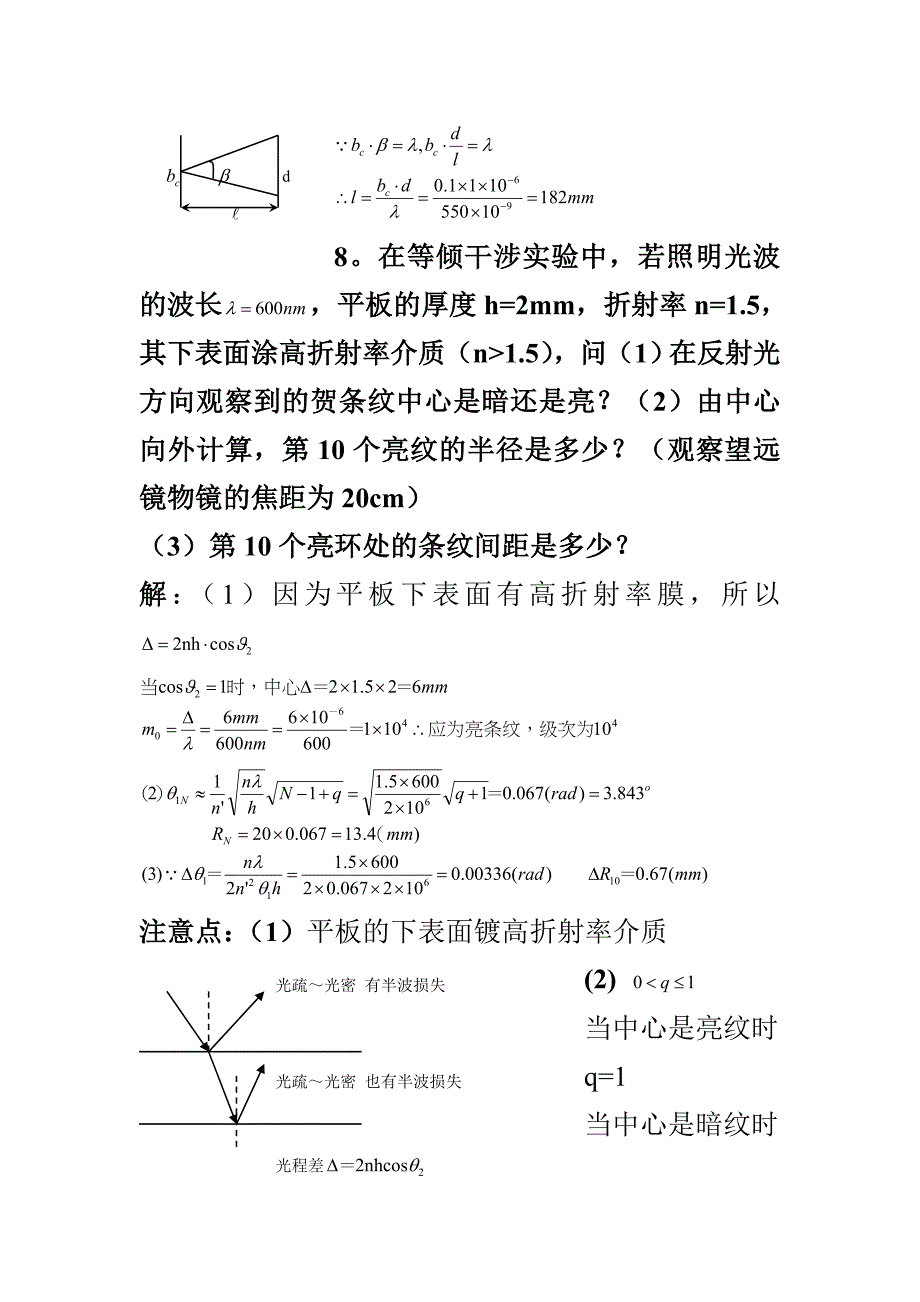 ∵ b_c · β = λ, b_c · d/l = λ
b_c β d
∴ l = (b_c · d)/λ = (0.1×1×10^-6)/(550×10^-9) = 182mm
ℓ
8。在等倾干涉实验中，若照明光波
的波长 λ = 600nm ，平板的厚度 h=2mm，折射率 n=1.5，
其下表面涂高折射率介质（n>1.5），问（1）在反射光
方向观察到的贺条纹中心是暗还是亮？（2）由中心
向外计算，第 10 个亮纹的半径是多少？（观察望远
镜物镜的焦距为 20cm）
（3）第 10 个亮环处的条纹间距是多少？
解:（1）因为平板下表面有高折射率膜，所以
Δ = 2nh·cosϑ_2
当cosϑ_2 = 1时，中心Δ＝2×1.5×2＝6mm
m_0 = Δ/λ = 6mm/600nm = (6×10^-6)/600 ＝1×10^4 ∴应为亮条纹，级次为10^4
(2) θ_1N ≈ (1/n') √(nλ/h) √(N−1+q) = √((1.5×600)/(2×10^6)) √(q+1) = 0.067(rad) = 3.843°
R_N = 20×0.067 = 13.4( mm)
(3) ∵ Δθ_1 = nλ/(2n'^2 θ_1 h) = (1.5×600)/(2×0.067×2×10^6) = 0.00336(rad) ΔR_10＝0.67(mm)
注意点:（1）平板的下表面镀高折射率介质
光疏～光密 有半波损失
(2) 0 < q ≤ 1
当中心是亮纹时
光疏～光密 也有半波损失
q=1
当中心是暗纹时
光程差Δ＝2nhcosθ_2